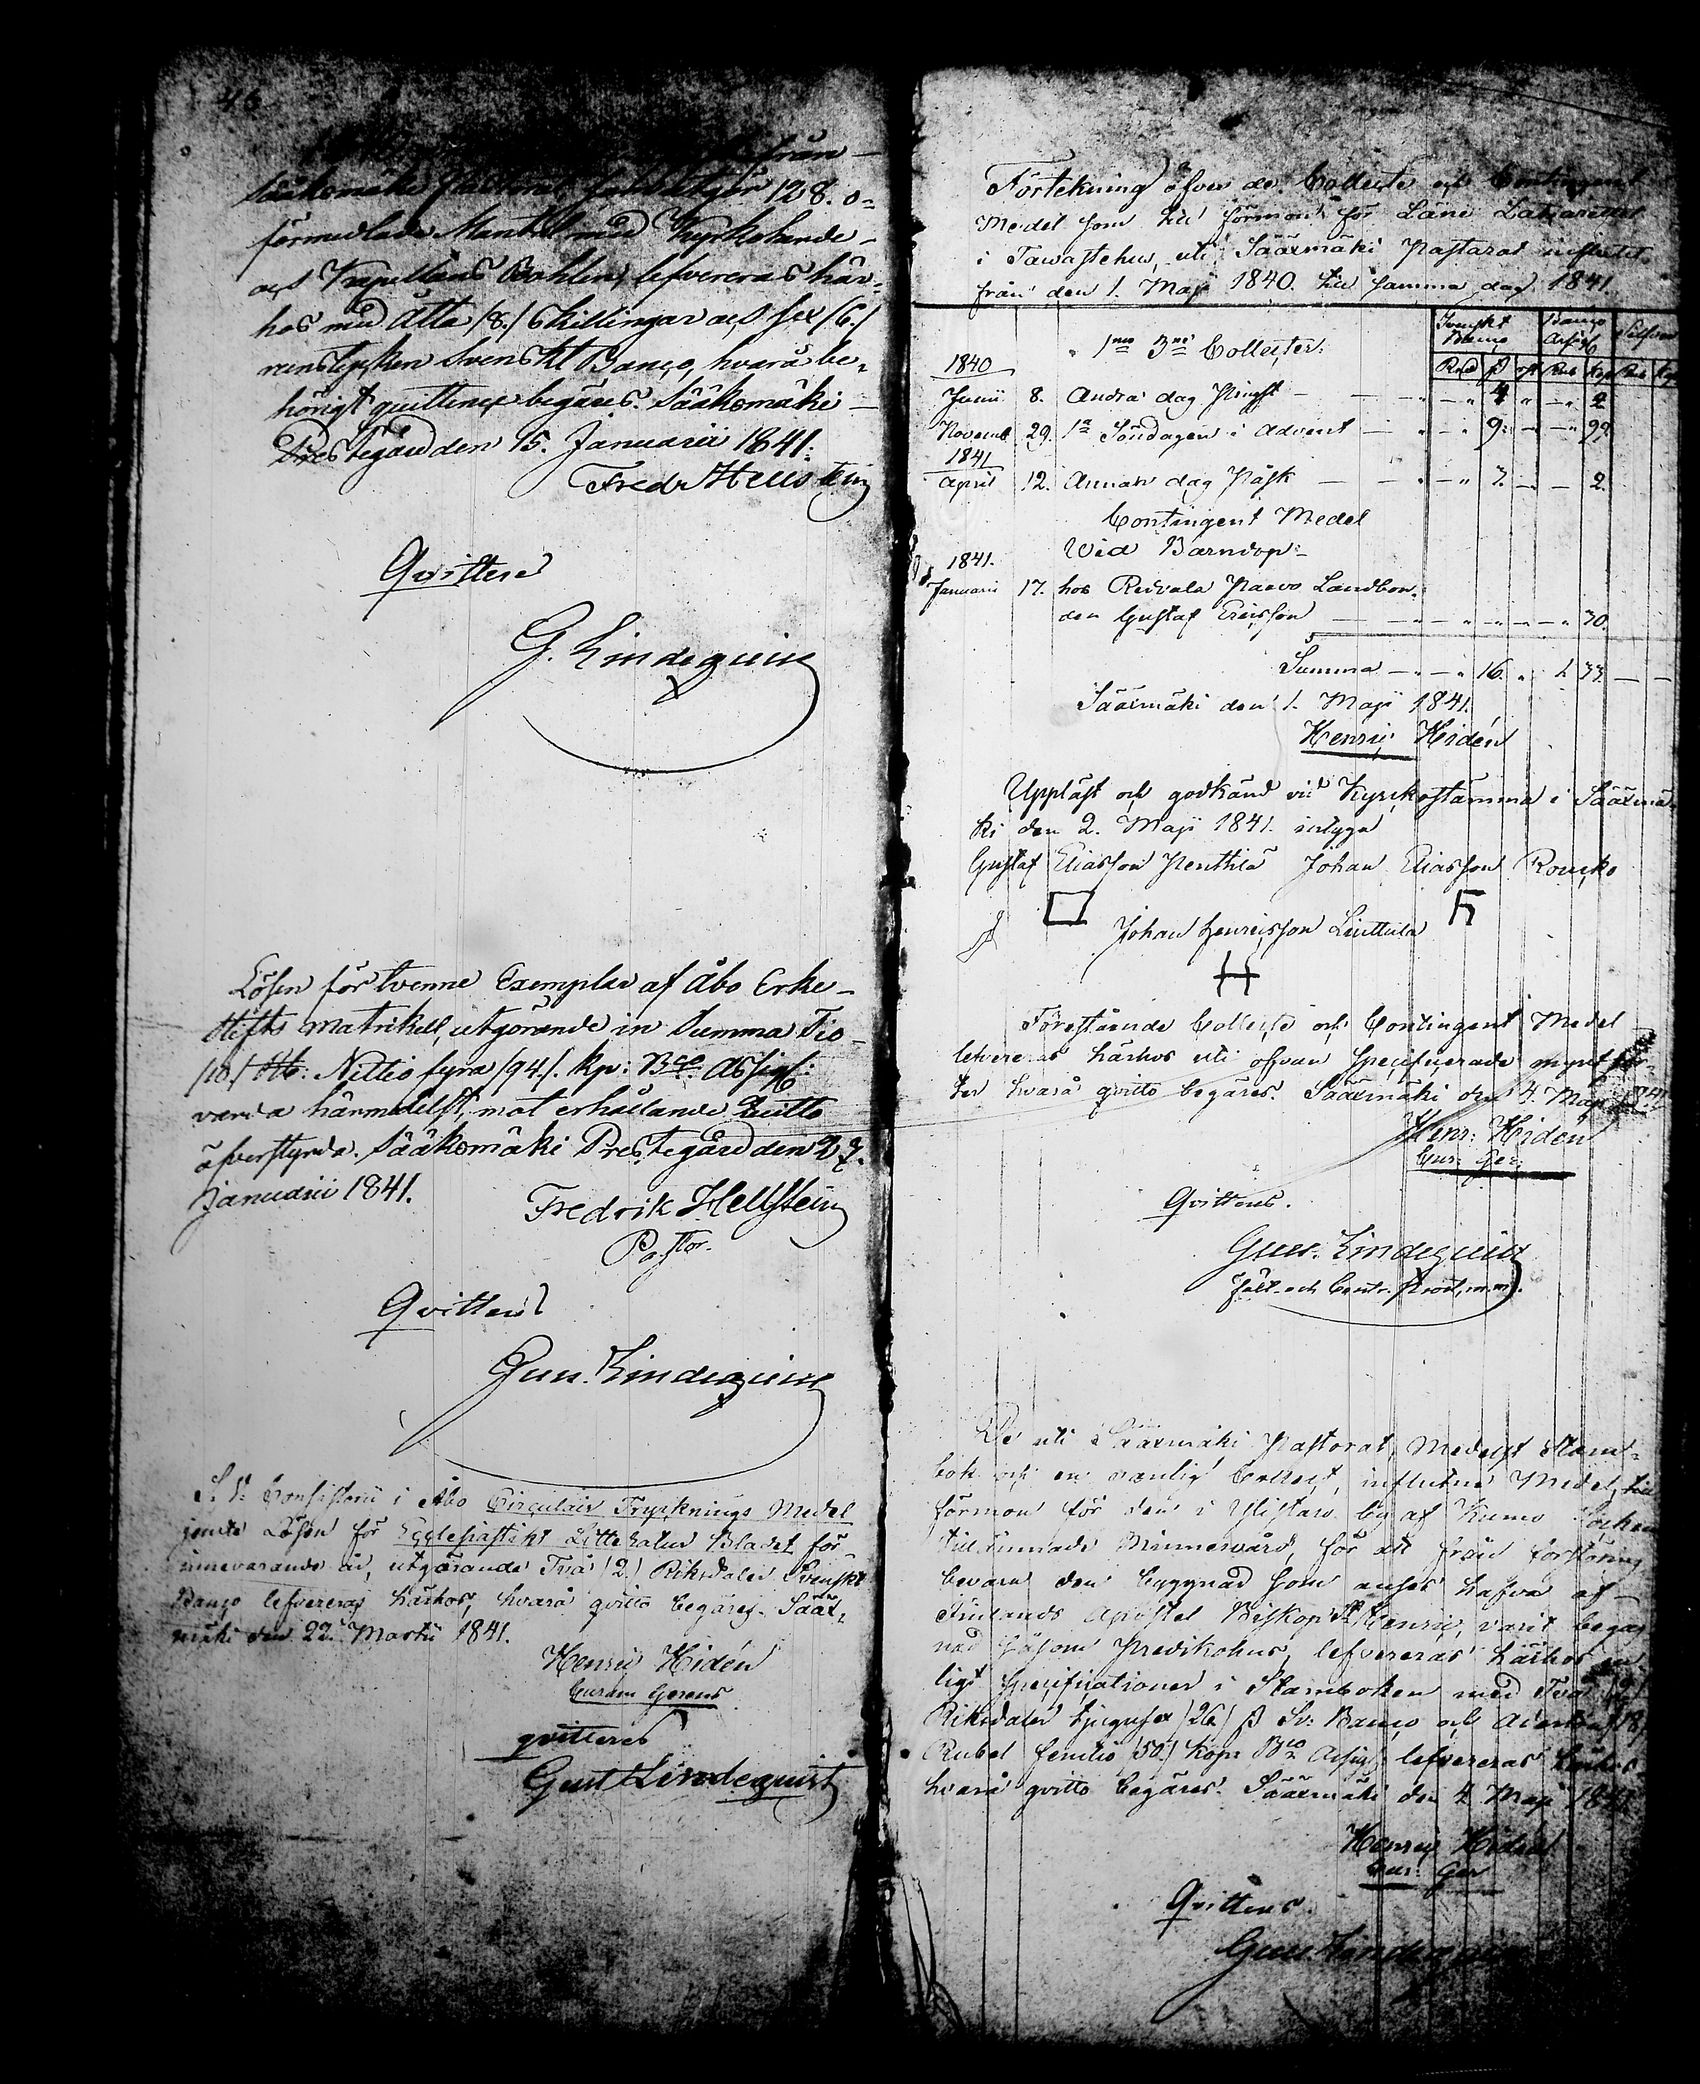 46
från
Sääksmäki utgör 128. o-
förmedlade Mantal med Kyrkolands
och Kapellans Bohlen, lefvereras här-
hos med Åtta /8./ Skillingar och sex /6./
runstycken Svenskt Banco, hvarå be-
hörigt quittence begäres. Sääksmäki
Prestegård den 15. Januarii 1841.
Fredr Hellstein
Qvitteras
G. Lindequist
Lösen för tvenne Exemplar af Åbo Erke-
stifts matrikel, utgörande in Summa Tio
/10./ Rb: Nittio fyra /94/. Kp: Bco Assign:
varda härmedelst, mot erhållande Quitto
öfverstyrde. Sääksmäki Prestegård den 23.
Januarii 1841.
Fredrik Hellstein
Pastor.
Qvitteras
Gust. Lindequist
S. V. Consistorii i Åbo Circulair Trycknings Medel
jemte Lösen för Ecclesiastikt Litteratur Bladet för
innevarande år, utgörande Två /2./ Riksdaler Svenskt
Banco lefvereras härhos, hvarå qvitto begäres. Sääx-
mäki den 22. Martii 1841.
Henric Hidén
Curam Gerens
qvitteras
Gust Lindequist
Förtekning öfver de Collecte och Contingent
Medel som till förmon för Läne Lazarettet
i Tawastehus, uti Sääxmäki Pastorat influtit
från den 1. Maji 1840. till samma dag 1841.
Svenskt Banco Banco Assign Silfver
1mo 3ne Collecter: Rd ß rst Rub Kop Rub Kop
1840
Junii 8. Andra dag Pingst 4 2
Novemb. 29. 1a Söndagen i Advent 9. 99
1841
April 12. Annan dag Påsk 3. 2.
Contingent Medel
Wid Barndop
1841.
Januarii 17. hos Redvala Paavo Landbon-
den Gustaf Ericsson 30.
Summa 16. 1 33.
Sääxmäki den 1. Maji 1841.
Henric Hidén
Uppläst och godkänd vid Kyrckostämma i Sääxmä-
ki den 2. Maji 1841. intyga
Gustaf Eliasson Penttilä Johan Eliasson Roucko
Johan Henricsson Linttula
Förestående Collecte och Contingent Medel
lefvereras härhos uti ofvan specificerade myntsor-
ter hvarå qvitto begäres. Sääxmäki den 4. Maji 1841
Henr: Hidén
Cur: Ger:
Qvitteras.
Gust. Lindequist
De uti Sääxmäki Pastorat, medelst Stam-
bok och en vanlig Collect, influtne Medel, till
förmon för den i Ylistaro by af Kumo Socken
tillämnade Minnesvård, för att från förstöring
bevara den byggnad som anses hafva af
Finlands Apostel Biskop St Henric, varit begag-
nad såsom Predikohus, lefvereras härhos en-
ligt specificationer i Stamboken med Två /2/
Riksdaler tjugusex /26/ ß Sv: Banco och Aderton /18/
Rubel femtio /50/ kop: Bco Assig: lefvereras härhos
hvarå qvitto begäres. Sääxmäki den 4 Maji 1841
Henric Hidén
Cur: Ger
Qvitteras.
Gust Lindequist